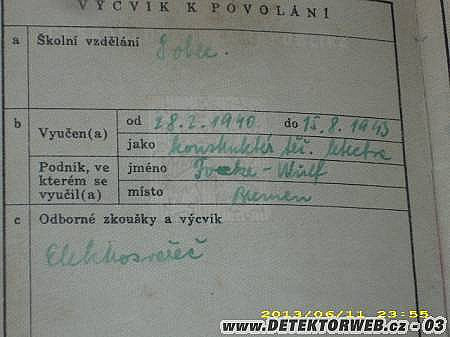 VÝCVIK K POVOLÁNÍ
a Školní vzdělání
b Vyučen(a) od 28.2.1940 do 15.8.1943
jako
Podnik, ve kterém se vyučil(a) jméno Focke-Wulf
místo Bremen
c Odborné zkoušky a výcvik
Elektrosvářeč
2013/06/11 23:55
www.DETEKTORWEB.cz - 03